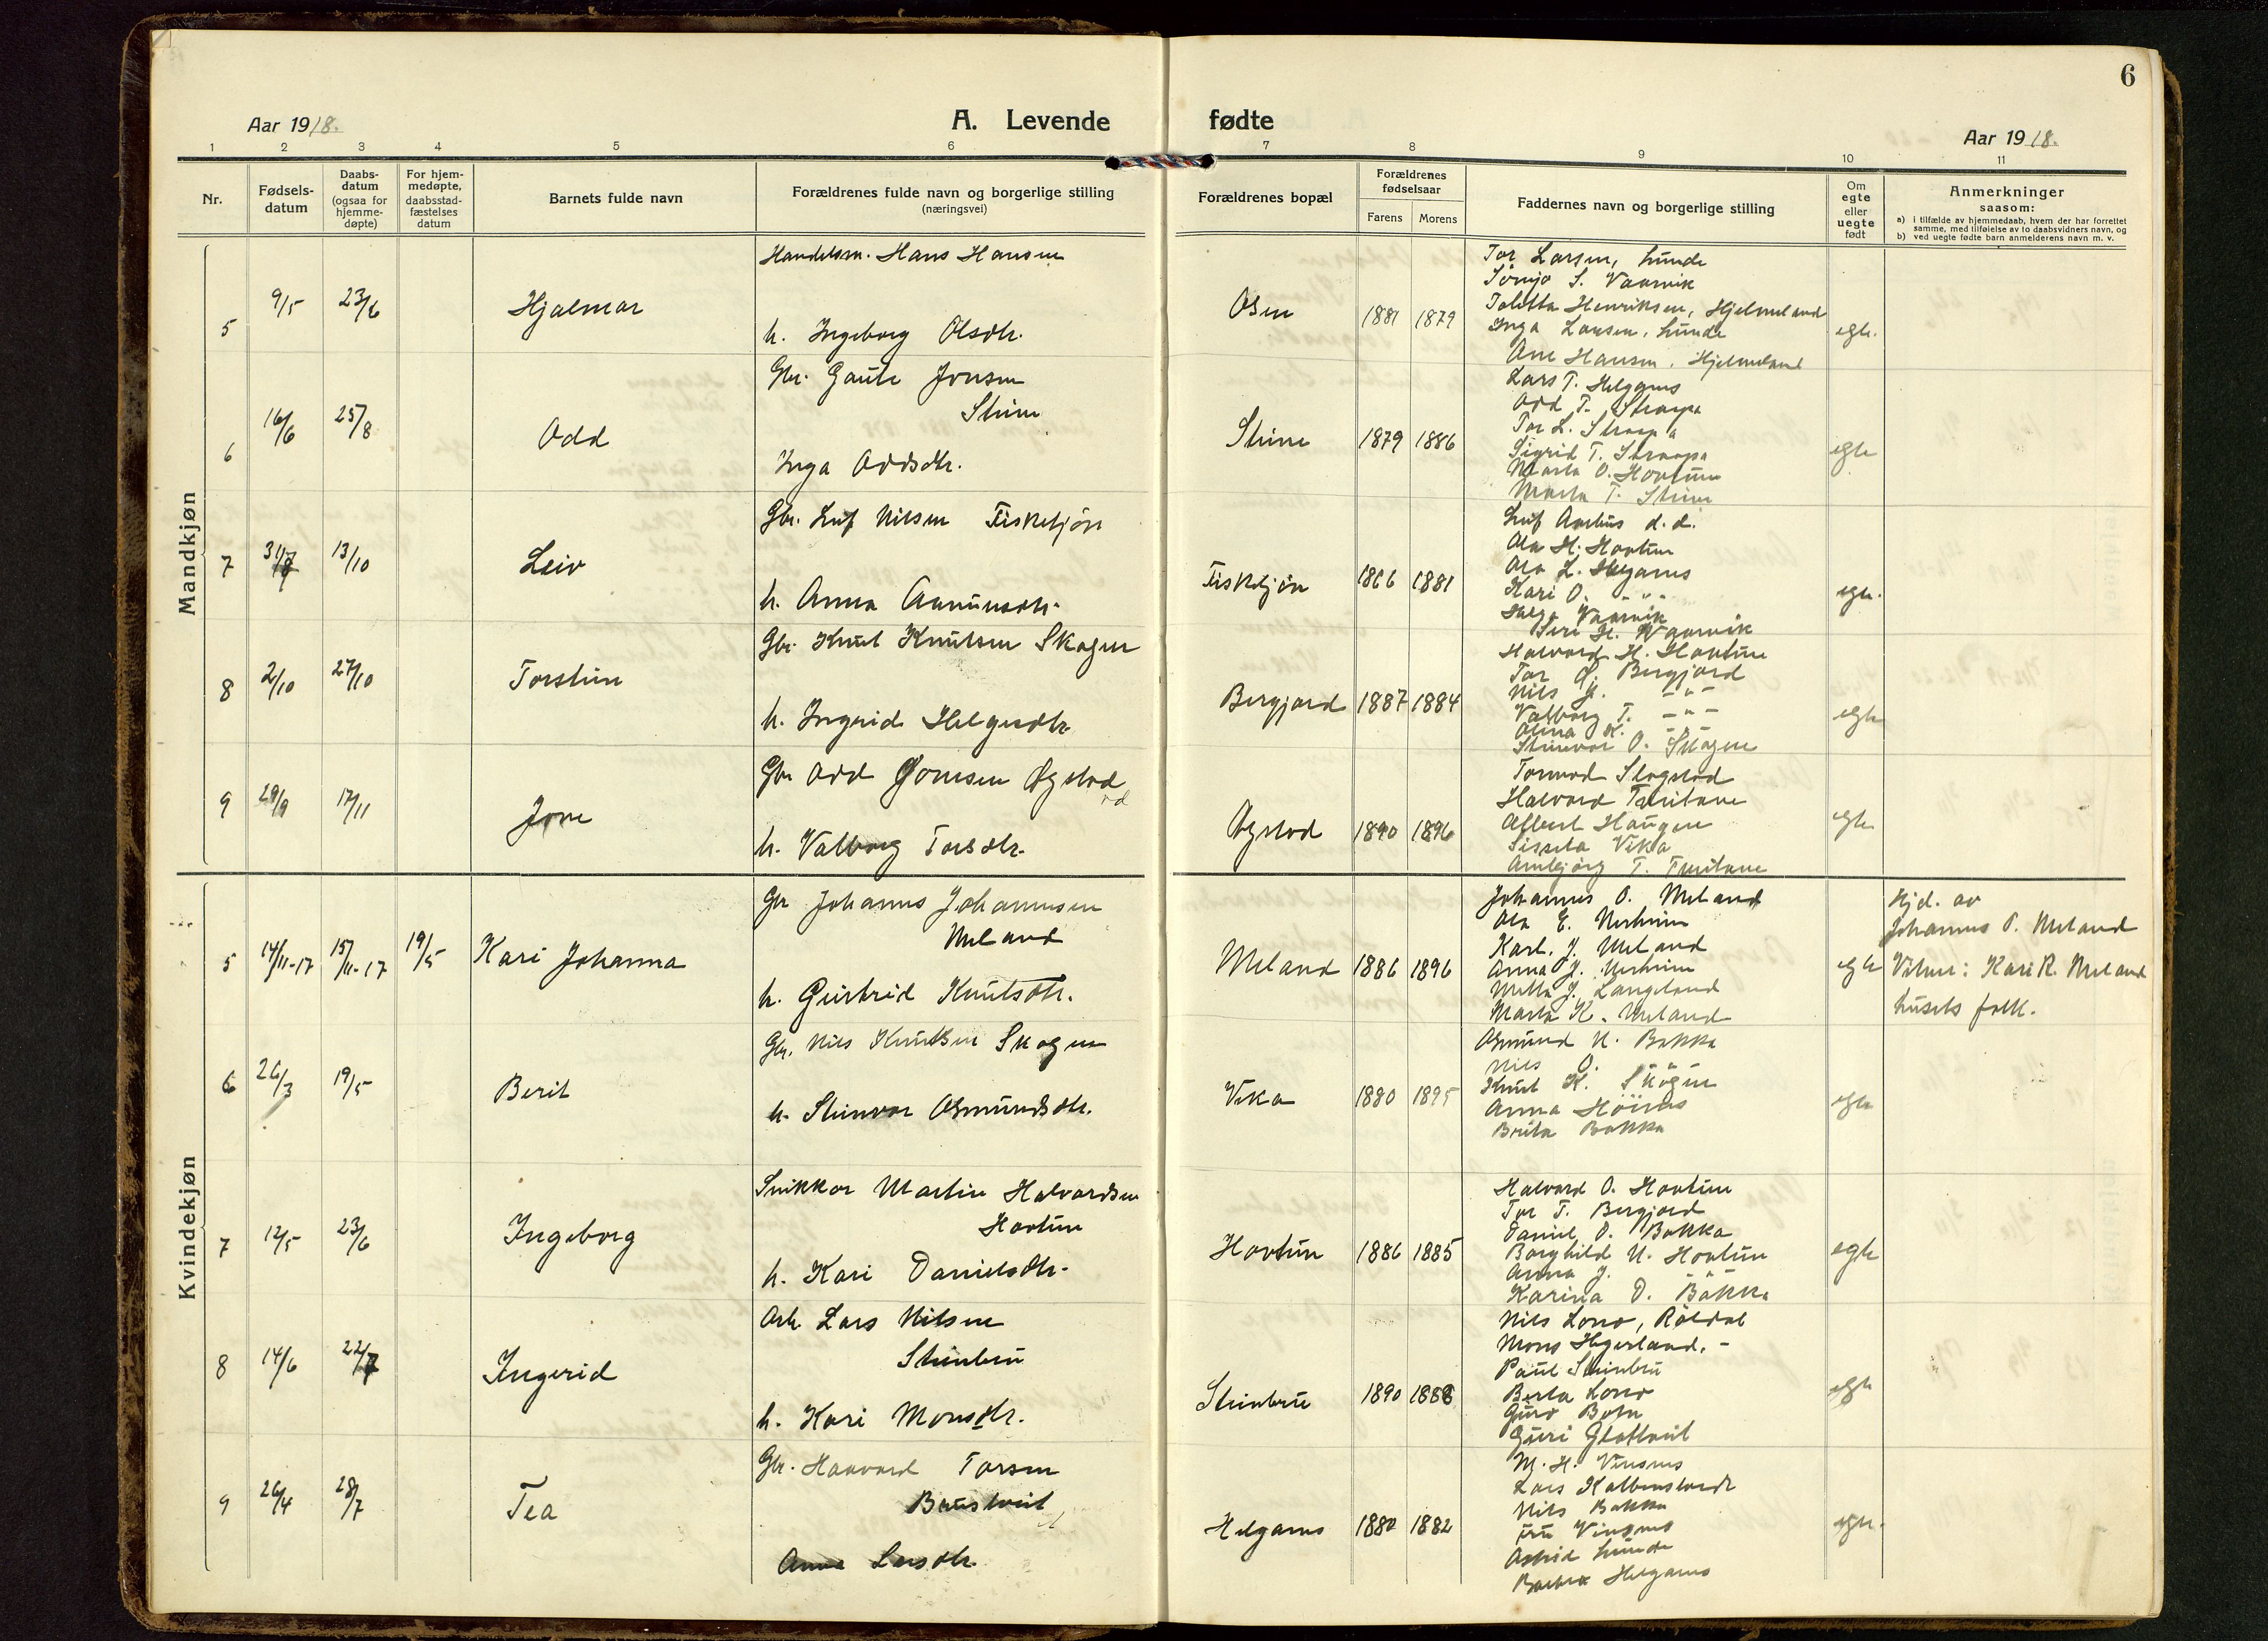 6
Aar 1918.
A. Levende fødte
Aar 1918.
1 2 3 4 5 6 7 8 9 10 11
Nr.
Fødsels-
datum
Daabs-
datum
(ogsaa for
hjemme-
døpte)
For hjem-
medøpte,
daabsstad-
fæstelses
datum
Barnets fulde navn
Forældrenes fulde navn og borgerlige stilling
(næringsvei)
Forældrenes bopæl
Forældrenes
fødselsaar
Farens Morens
Faddernes navn og borgerlige stilling
Om
egte
eller
uegte
født
Anmerkninger
saasom:
a) i tilfælde av hjemmedaab, hvem der har forrettet
samme, med tilføielse av to daabsvidners navn, og
b) ved uegte fødte barn anmelderens navn m. v.
Mandkjøn
5 9/5 23/6 Hjalmar
Handelsm. Hans Hansen
h. Ingeborg Olsdtr.
Osen 1881 1879
Tor Larsen, Lunde
S. Vaarvik
Henriksen, Hjelmeland
Inga Larsen, Lunde
Ane Hansen, Hjelmeland
egte.
6 16/6 25/8 Odd
Gbr. Gaute Jonsen
Steine
Inga Oddsdtr.
Steine 1879 1886
Lars T. Helganes
Odd T. Straapa
Tor L. Straapa
Sigrid T. Straapa
Marta O. Hovtun
Marta T. Steine
egte
7 31/8 13/10 Leiv
Gbr. Leif Nilsen Fisketjøn
h. Anna Aamunsdtr.
Fisketjøn 1866 1881
Leif Aarhus d. d.
Ola H. Hovtun
Ola L. Helganes
Kari O. - " -
Helga Vaarvik
Siri H. Vaarvik
egte.
8 2/10 27/10 Torstein
Gbr. Knut Knutsen Skogen
h. Ingerid Helgesdtr.
Bergjord 1887 1884
Halvard H. Hovtun
Tor Ø. Bergjord
Nils K. - " -
Valborg T. - " -
Olina K. - " -
Steinvor O. Skogen
egte
9 29/9 17/11 Jone
Gbr Odd Jonsen Øgstad
h. Valborg Torsdtr.
Øgstad 1890 1896
Tormod Slogstad
Halvard Tveitane
Albert Haugen
Sissela Vika
Ambjørg T. Tveitane
egte
Kvindekjøn
5 14/11-17 15/11-17 19/5 Kari Johanna
Gbr Johannes Johannesen
Meland
h. Gurtrid Knutsdtr.
Meland 1886 1896
Johannes O. Meland
Ola E. Nerheim
Karl. J. Meland
Anna J. Nerheim
Metta J. Langeland
Marta K. Meland
egte
Hjd. av
Johannes O. Meland
Vitner: Kari R. Meland
husets folk.
6 26/3 19/5 Berit
Gbr. Nils Knutsen Skogen
h. Steinvor Osmundsdtr.
Vika 1880 1895
Osmund N. Bakka
Nils O. - " -
Knut K. Skogen
Anna Høinæs
Brita Bakka
egte
7 12/5 23/6 Ingeborg
Snikkar Martin Halvardsen
Hovtun
h. Kari Danielsdtr.
Hovtun 1886 1885
Halvard O. Hovtun
Tor T. Bergjord
Daniel O. Bakka
Borghild N. Hovtun
Anna J. - " -
Karina D. Bakka
egte
8 14/6 22/7 Ingerid
Arb. Lars Nilsen
Steinbru
h. Kari Monsdtr.
Steinbru 1890 1888
Nils Lono, Røldal
Mons Hegerland, -
Paul Steinbru
Berta Lono
Guro Botn
Guri Glattveit
egte
9 26/4 28/7 Tea
Gbr. Haavard Torsen
Brustveit
Anna Larsdtr.
Helganes 1880 1882
M. H. Vinsnes
Lars Kolbeinstvedt
Nils Bakka
fru Vinsnes
Astrid Lunde
Barbra Helganes
egte.